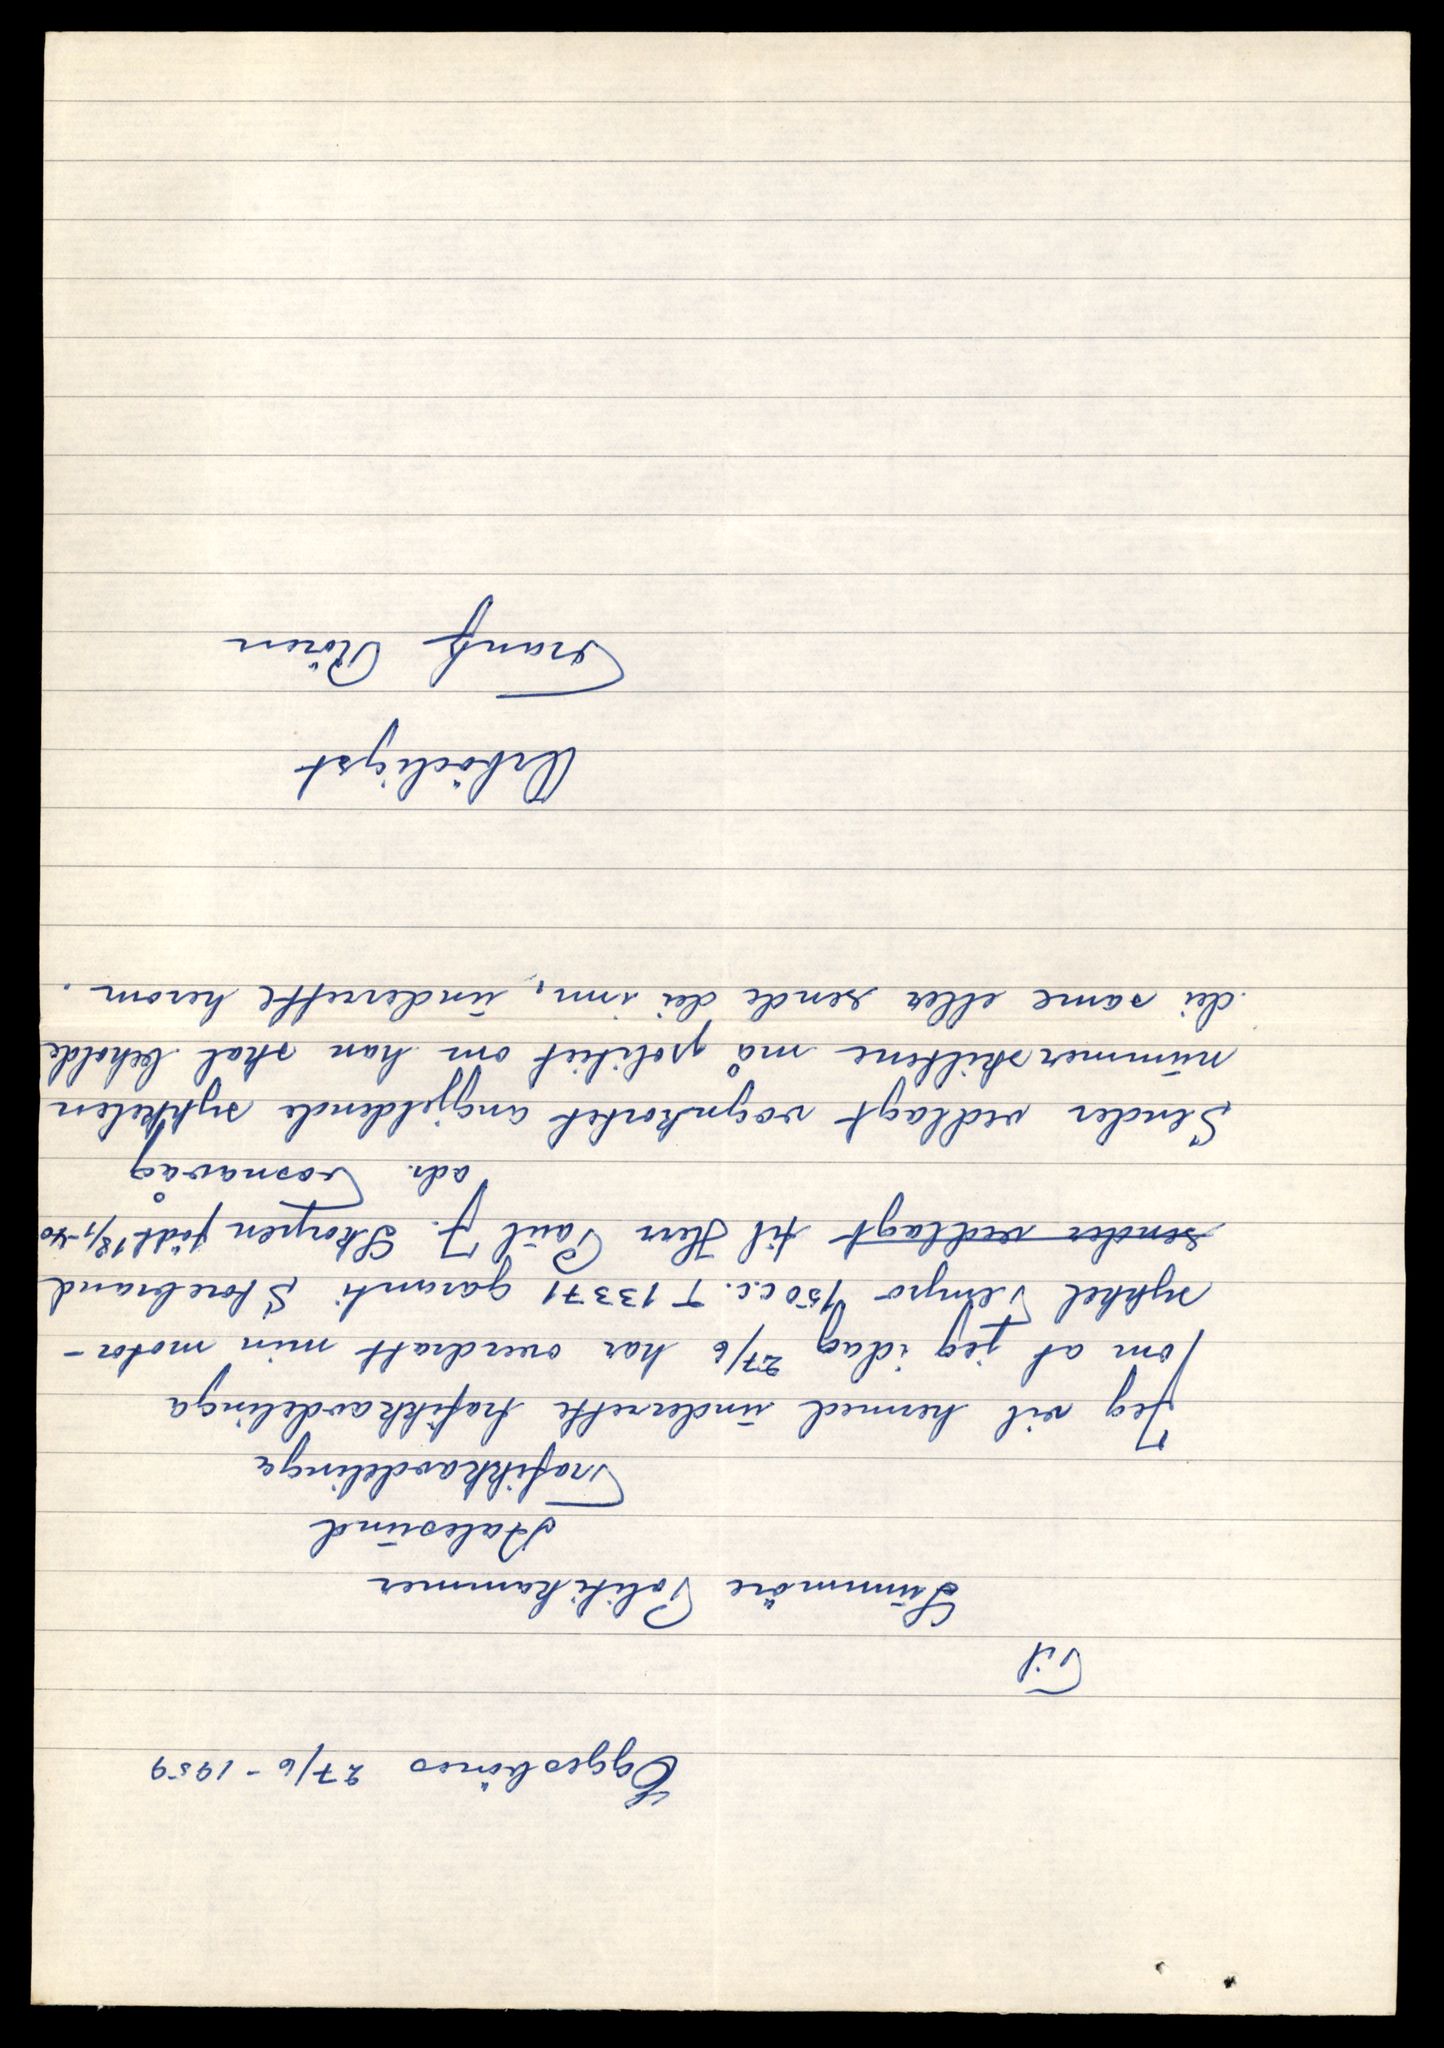 Eggesbönes 27/6 - 1959
Til
Sunnmöre Politikammer
Aalesund
Trafikkavdelinga
Jeg vil hermed underette trafikkavdelinga
om at jeg idag 27/6 har overdratt min motor-
sykkel Tempo 150 c.c. T 13371 garanti Storebrand
sender vedlagt til Herr Paul J. Skorpen födt 18/1-40
adr. Fosnavåg
Sender vedlagt vognkortet angjeldende sykkelen
nummerskiltene må politiet om han skal beholde
dei same eller sende dei inn, underette herom.
Ærbödigst
Frantz Rören